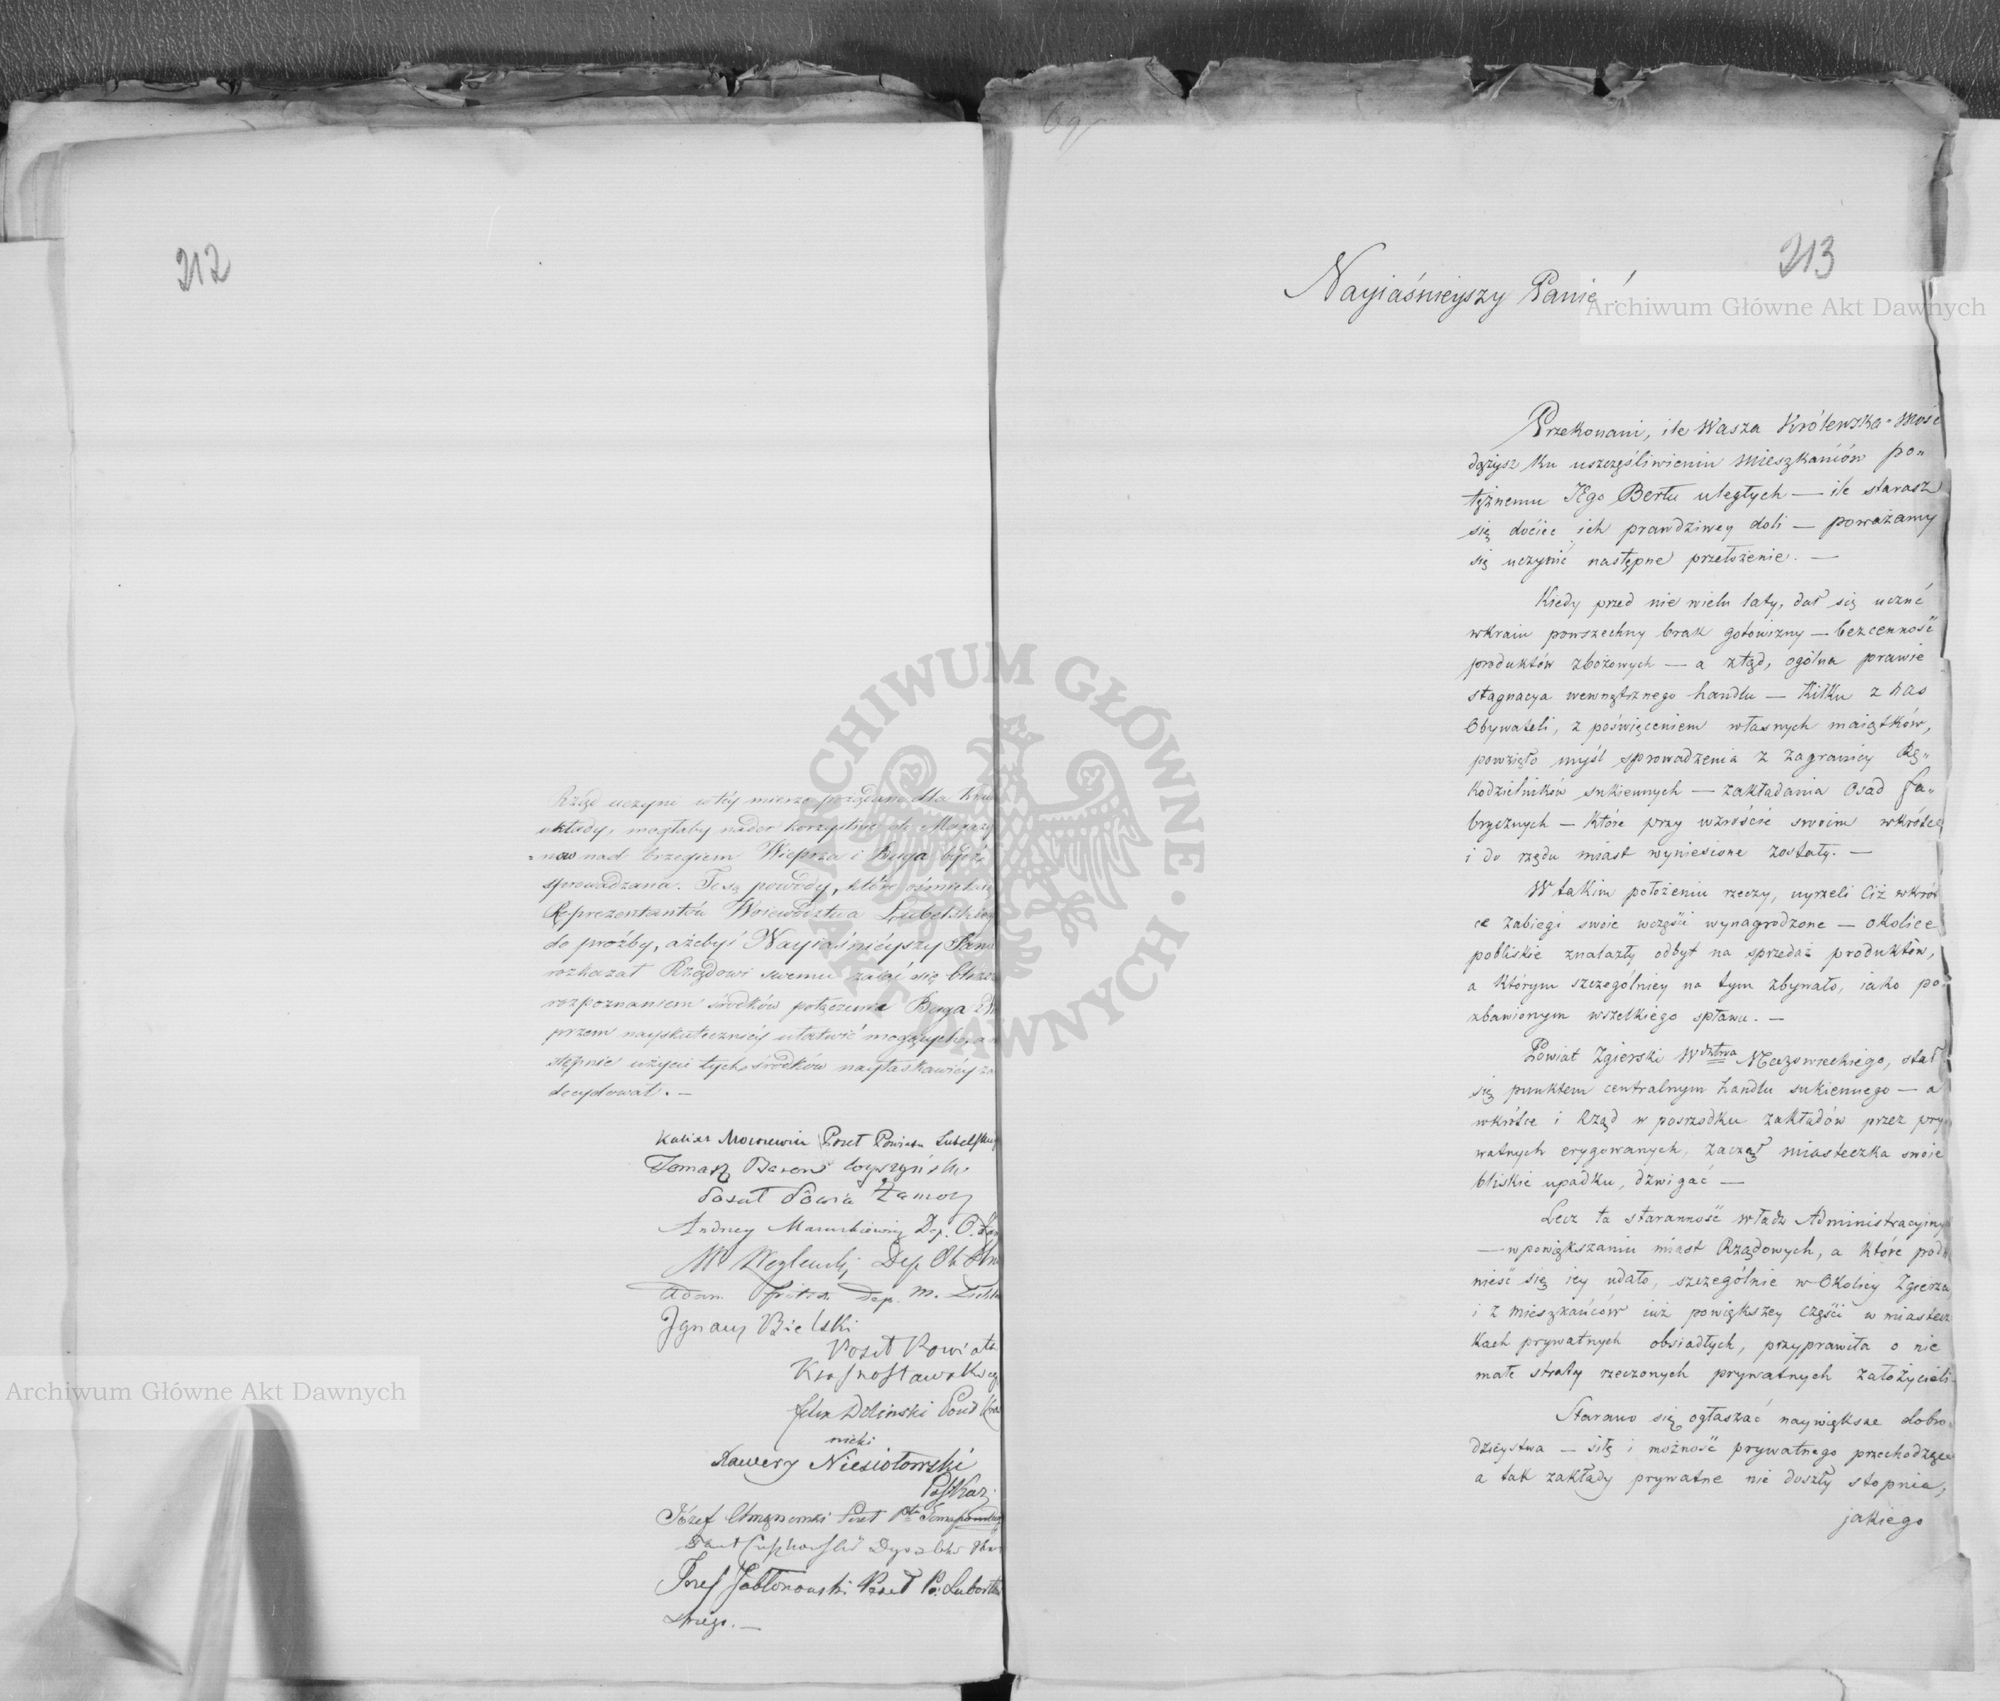 212
Rząd uczyni w téy mierze pożądane dla Kraiu
układy, mogłaby nader korzystnie do Magazy
nów nad brzegiem Wieprza i Buga bydź
sprowadzana. Te są powody, które ośmielaią
Reprezentantów Woiewództwa Lubelskiego
do proźby, ażebyś Nayiaśnieyszy Panie
rozkazał Rządowi swemu zaiąć się bliższem
rozpoznaniem środków połączenie Buga z Wie
przem nayskuteczniéy ułatwić mogących, a na
stępnie użycie tych środków nayłaskawiéy za
decydował. —
Poseł Powiatu Lubelskiego
Tomasz Baron Wyszyński
Poseł Powia Zamoy
Andrzey Dep. O.
M Węglewski Dep.
Adam Dep. M.
Ignacy Bielski
Poseł Powiatu
Krasnostawskieg
Felix Doliński Poseł Kraś
nicki
Xawery Niesiołowski
Józef Poseł
Józef Jabłonowski Poseł Po: Lubart
skiego. —
213
Nayiaśnieyszy Panie!
Przekonani, ile Wasza Królewska-Mość
dążysz ku uszczęśliwieniu Mieszkańców po„
tężnemu JEgo Berłu uległych — ile starasz
się dociec ich prawdziwey doli — poważamy
się uczynić następne przełożenie. —
Kiedy przed nie wielu laty, dał się uczuć
wkraiu powszechny brak gotowizny — bezcenność
produktów zbożowych — a ztąd, ogólna prawie
stagnacya wewnętrznego handlu — Kilku z nas
Obywateli, z poświęceniem własnych maiątków,
powzięło myśl sprowadzenia z zagranicy Rę„
kodzielników sukiennych — zakładania Osad fa„
brycznych — które przy wzroście swoim wkrótce
i do rzędu miast wyniesione zostały. —
W takim położeniu rzeczy, uyrzeli Ciż wkrót
ce zabiegi swoie wczęści wynagrodzone — okolice
pobliskie znalazły odbyt na sprzedaż produktów,
a którym szczególniey na tym zbywało, iako po„
zbawionym wszelkiego spławu. —
Powiat Zgierski Wdztwa Mazowieckiego, stał
się punktem centralnym handlu sukiennego — a
wkrótce i Rząd w posrzodku zakładów przez pry
watnych erygowanych, zaczął miasteczka swoie
bliskie upadku, dźwigać —
Lecz ta staranność władz Administracyiny
— wpowiększaniu miast Rządowych, a które pod„
nieść się iey udało, szczególnie w Okolicy Zgierza
i z Mieszkańców iuż powiększey części w miastecz
kach prywatnych obsiadłych, przyprawiła o nie
małe straty rzeczonych prywatnych założycieli
Starano się ogłaszać naywiększe dobro„
dzieystwa — siłę i możność prywatnego przechodzące
a tak zakłady prywatne nie doszły stopnia,
jakiego
Archiwum Główne Akt Dawnych
Archiwum Główne Akt Dawnych
ARCHIWUM GŁÓWNE AKT DAWNYCH